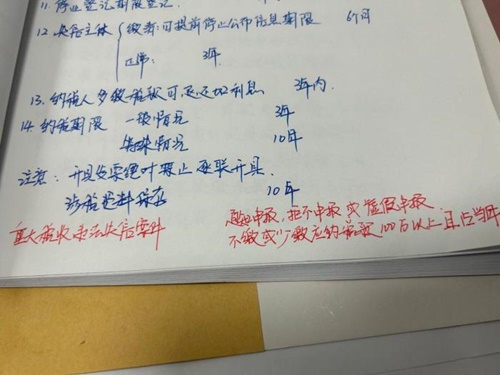 11. 停业登记期限登记.
12. 失信主体 { 缴清可提前停止公布信息期限 6个月
正常: 3年
13. 纳税人多缴税款可退还加利息 3年内.
14. 纳税期限 一般情况 3年
特殊情况 10年
注意: 开具发票 禁止 联开具.
涉税资料保存 10年
重大税收违法失信案件
申报, 拒不申报 或 虚假申报
不缴或少缴应纳税款100万以上 且占当年